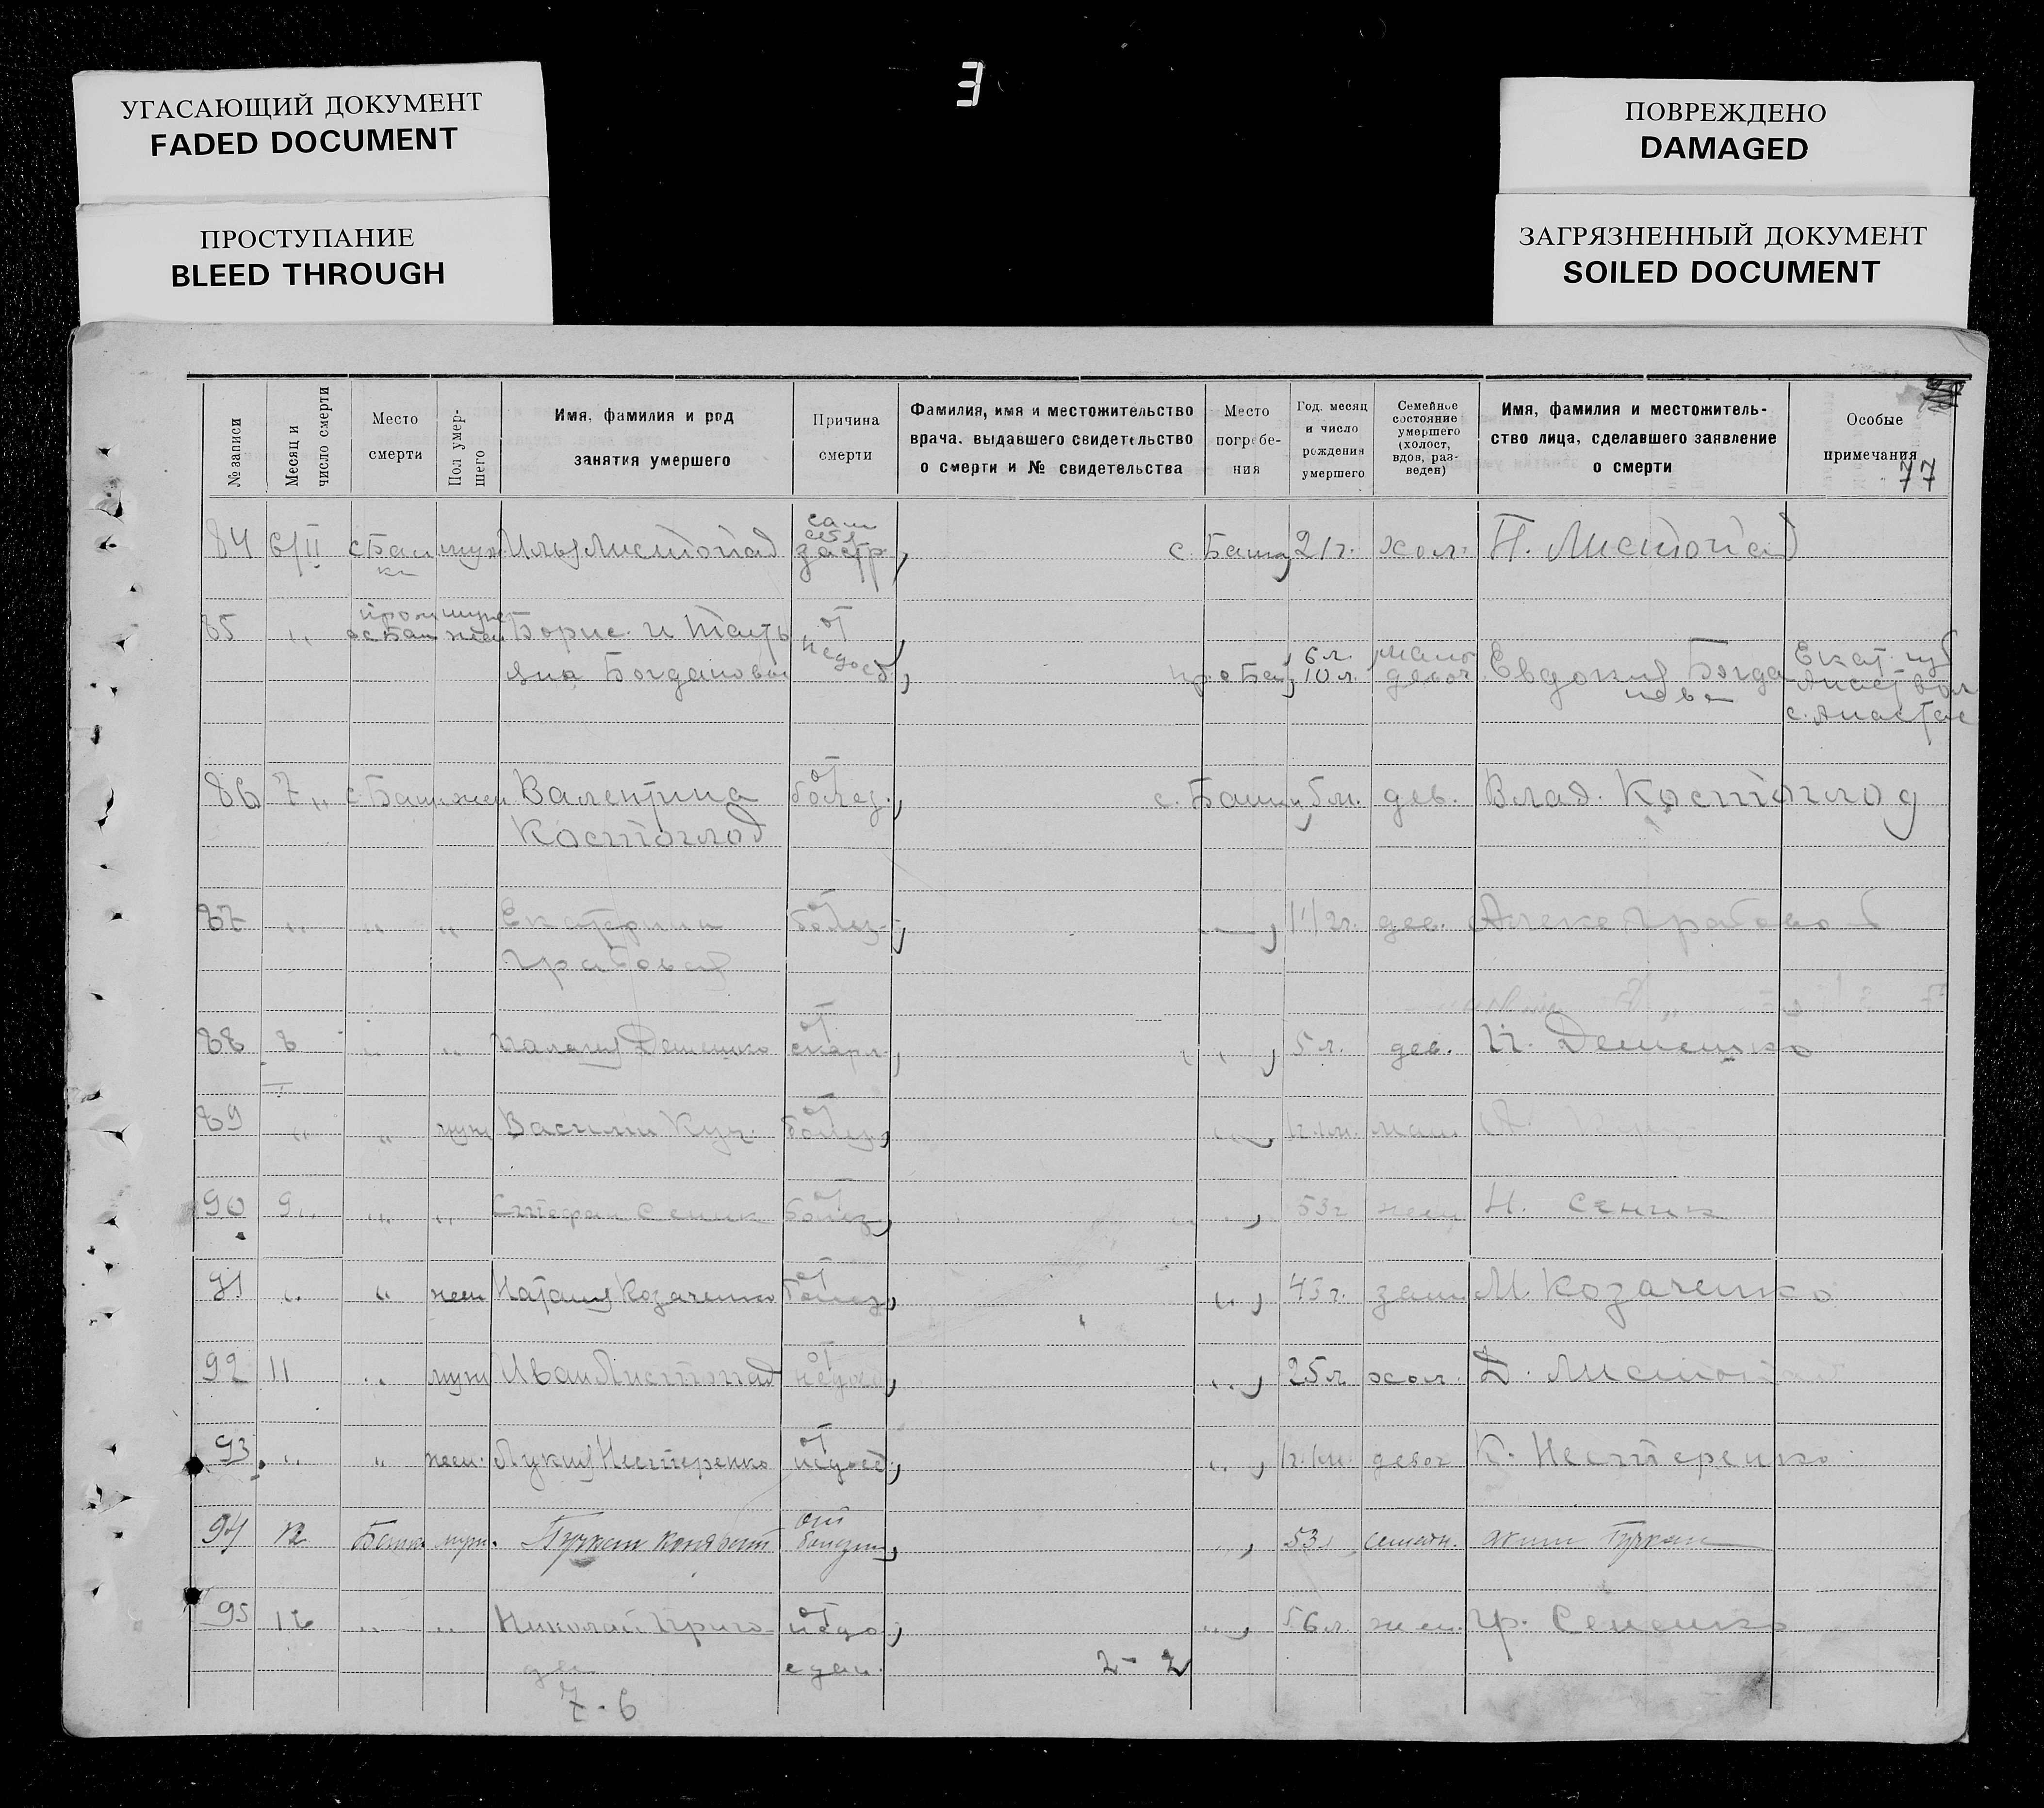 УГАСАЮЩИЙ ДОКУМЕНТ
FADED DOCUMENT
ПРОСТУПАНИЕ
BLEED THROUGH
З
ПОВРЕЖДЕНО
DAMAGED
ЗАГРЯЗНЕННЫЙ ДОКУМЕНТ
SOILED DOCUMENT
№ записи
Месяц и
число смерти
Место
смерти
Пол умер-
шего
Имя, фамилия и род
занятия умершего
Причина
смерти
Фамилия, имя и местожительство
врача, выдавшего свидетельство
о смерти и № свидетельства
Место
погребе-
ния
Год, месяц
и число
рождения
умершего
Семейное
состояние
умершего
(холост,
вдов, раз-
веден)
Имя, фамилия и местожитель-
ство лица, сделавшего заявление
о смерти
Особые
примечания
77
84 6/II с Баш муж Илья Листопад сам себя застр. с. Башт 21г. хол. П. Листопад
ка
85 " пром муж Борис и Тать от
ос Баш жен яна Богдановы недоед. 6 л. 10 л. мальч девоч Евдокия Богда Екат. губ
нова Анаст вол
с. Анастас
86 7 " с Баш жен Валентина от болез. с. Башт 5 м. дев. Влад. Костоглод
Костоглод
87 " " " Екатерина от болез. " 1 1/2 г. дев. Алекс Грабовой
Грабовая
88 8 " " от скарл. " 5 л. дев. Демешко
89 " " муж Василий Куч. от болез. " 1г.1м. мал
90 9 " " " Стефан Сеник от болез " 53г жен Н. Сеник
91 " " жен Наталия Козаченко от болез " 43г. зам М. Козаченко
92 11 " муж Иван Листопад от недоед " 25 л. хол. Д. Листопад
93 " " жен. Лукия Нестеренко от недоед " 1г.1м. девоч К. Нестеренко
94 12 Башт муж. от болезни " 53 семейн.
95 12 " " Николай Приго- от недо " 56 л. жен. Гр. Семенко
да едан.
2 - 2
7 - 6